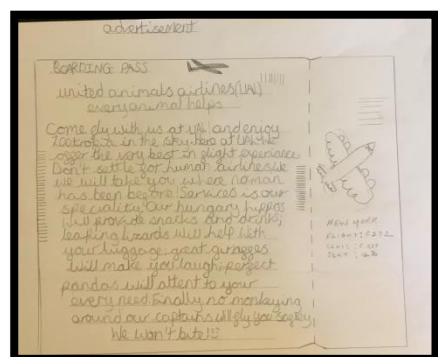 advertisement
BOARDING PASS
united animals airlines (UAL)
every animal helps
Come fly with us at UAL and enjoy
in the sky. here at UAL we
offer the very best in flight experience
Don't settle for human airlines we
we will take you where no man
has been before services is our
speciality. Our hungary hippos
will provide snacks and drinks,
leaping lizards will help with
your luggage, great giraffes
will make you laugh, perfect
pandas will attent to your
every need. Finally, no monkeying
around our captains will fly you safely
We won't bite!!!
NEW YORK
FLIGHT: